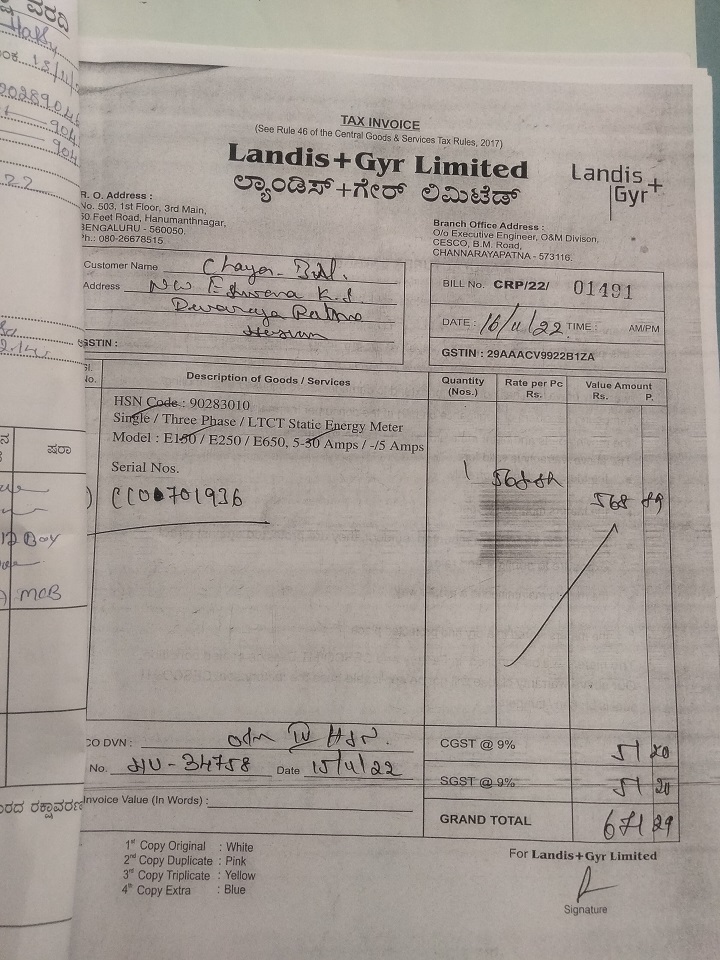 TAX INVOICE
(See Rule 46 of the Central Goods & Services Tax Rules, 2017)
Landis+Gyr Limited
ಲ್ಯಾಂಡಿಸ್+ಗೇರ್ ಲಿಮಿಟೆಡ್
Landis+
Gyr
R. O. Address :
No. 503, 1st Floor, 3rd Main,
50 Feet Road, Hanumanthnagar,
BENGALURU - 560050.
Ph.: 080-26678515
Branch Office Address :
O/o Executive Engineer, O&M Divison,
CESCO, B.M. Road,
CHANNARAYAPATNA - 573116.
Customer Name
Address
GSTIN :
BILL No. CRP/22/ 01491
DATE : 16/11/22 TIME : AM/PM
GSTIN : 29AAACV9922B1ZA
Sl. No. Description of Goods / Services Quantity (Nos.) Rate per Pc Rs. Value Amount Rs. P.
HSN Code : 90283010
Single / Three Phase / LTCT Static Energy Meter
Model : E150 / E250 / E650, 5-30 Amps / -/5 Amps
Serial Nos.
1 568 89
CGST @ 9% 51 20
SGST @ 9% 51 20
GRAND TOTAL 671 29
CO DVN :
No. 34758 Date 15/11/22
Invoice Value (In Words) :
1st Copy Original : White
2nd Copy Duplicate : Pink
3rd Copy Triplicate : Yellow
4th Copy Extra : Blue
For Landis+Gyr Limited
Signature
ಷರಾ
MCB